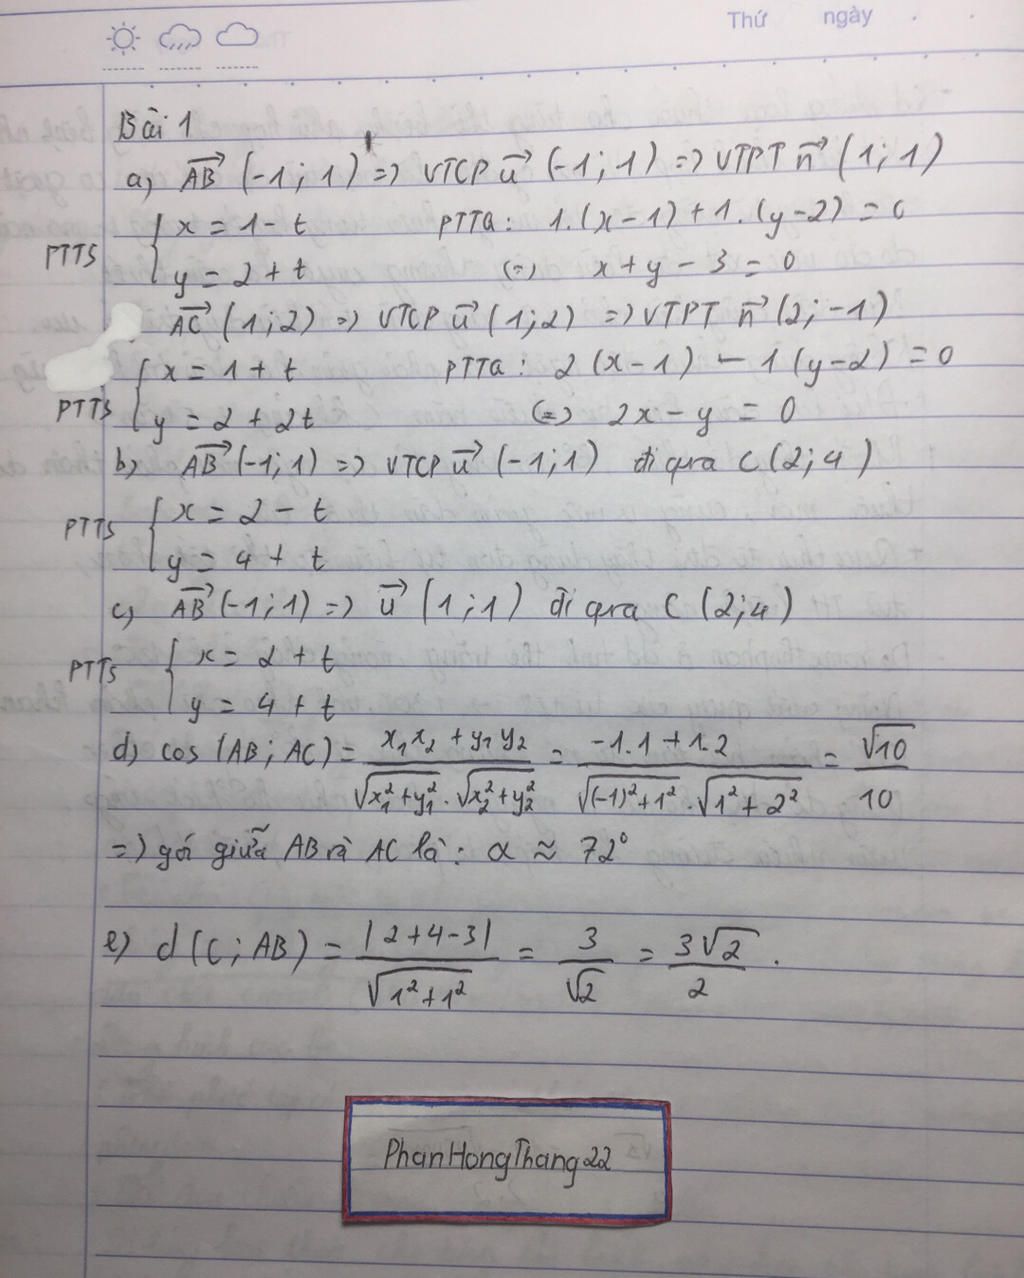 Thứ ngày
Bài 1
a) AB→ (-1; 1) => VTCP u→ (-1; 1) => VTPT n→ (1; 1)
PTTS { x = 1 - t PTTQ: 1.(x-1) + 1.(y-2) = 0
y = 2 + t (=) x + y - 3 = 0
AC→ (1; 2) => VTCP u→ (1; 2) => VTPT n→ (2; -1)
PTTS { x = 1 + t PTTQ: 2(x-1) - 1(y-2) = 0
y = 2 + 2t (=) 2x - y = 0
b) AB→ (-1; 1) => VTCP u→ (-1; 1) đi qua C(2; 4)
PTTS { x = 2 - t
y = 4 + t
c) AB→ (-1; 1) => u→ (1; 1) đi qua C(2; 4)
PTTS { x = 2 + t
y = 4 + t
d) cos(AB; AC) = (x₁x₂ + y₁y₂) / (√(x₁² + y₁²) . √(x₂² + y₂²)) = (-1.1 + 1.2) / (√((-1)² + 1²) . √(1² + 2²)) = √10 / 10
=) gó giữa AB và AC là: α ≈ 72°
e) d(C; AB) = |2 + 4 - 3| / √(1² + 1²) = 3 / √2 = 3√2 / 2 .
PhanHongThang22